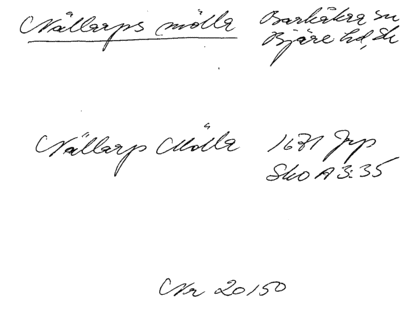 Vällarps mölla Barkåkra sn
Bjäre hd, Sk
Vällarp Mölla 1671 Jrp
Sko A 3:35
Nr 20150